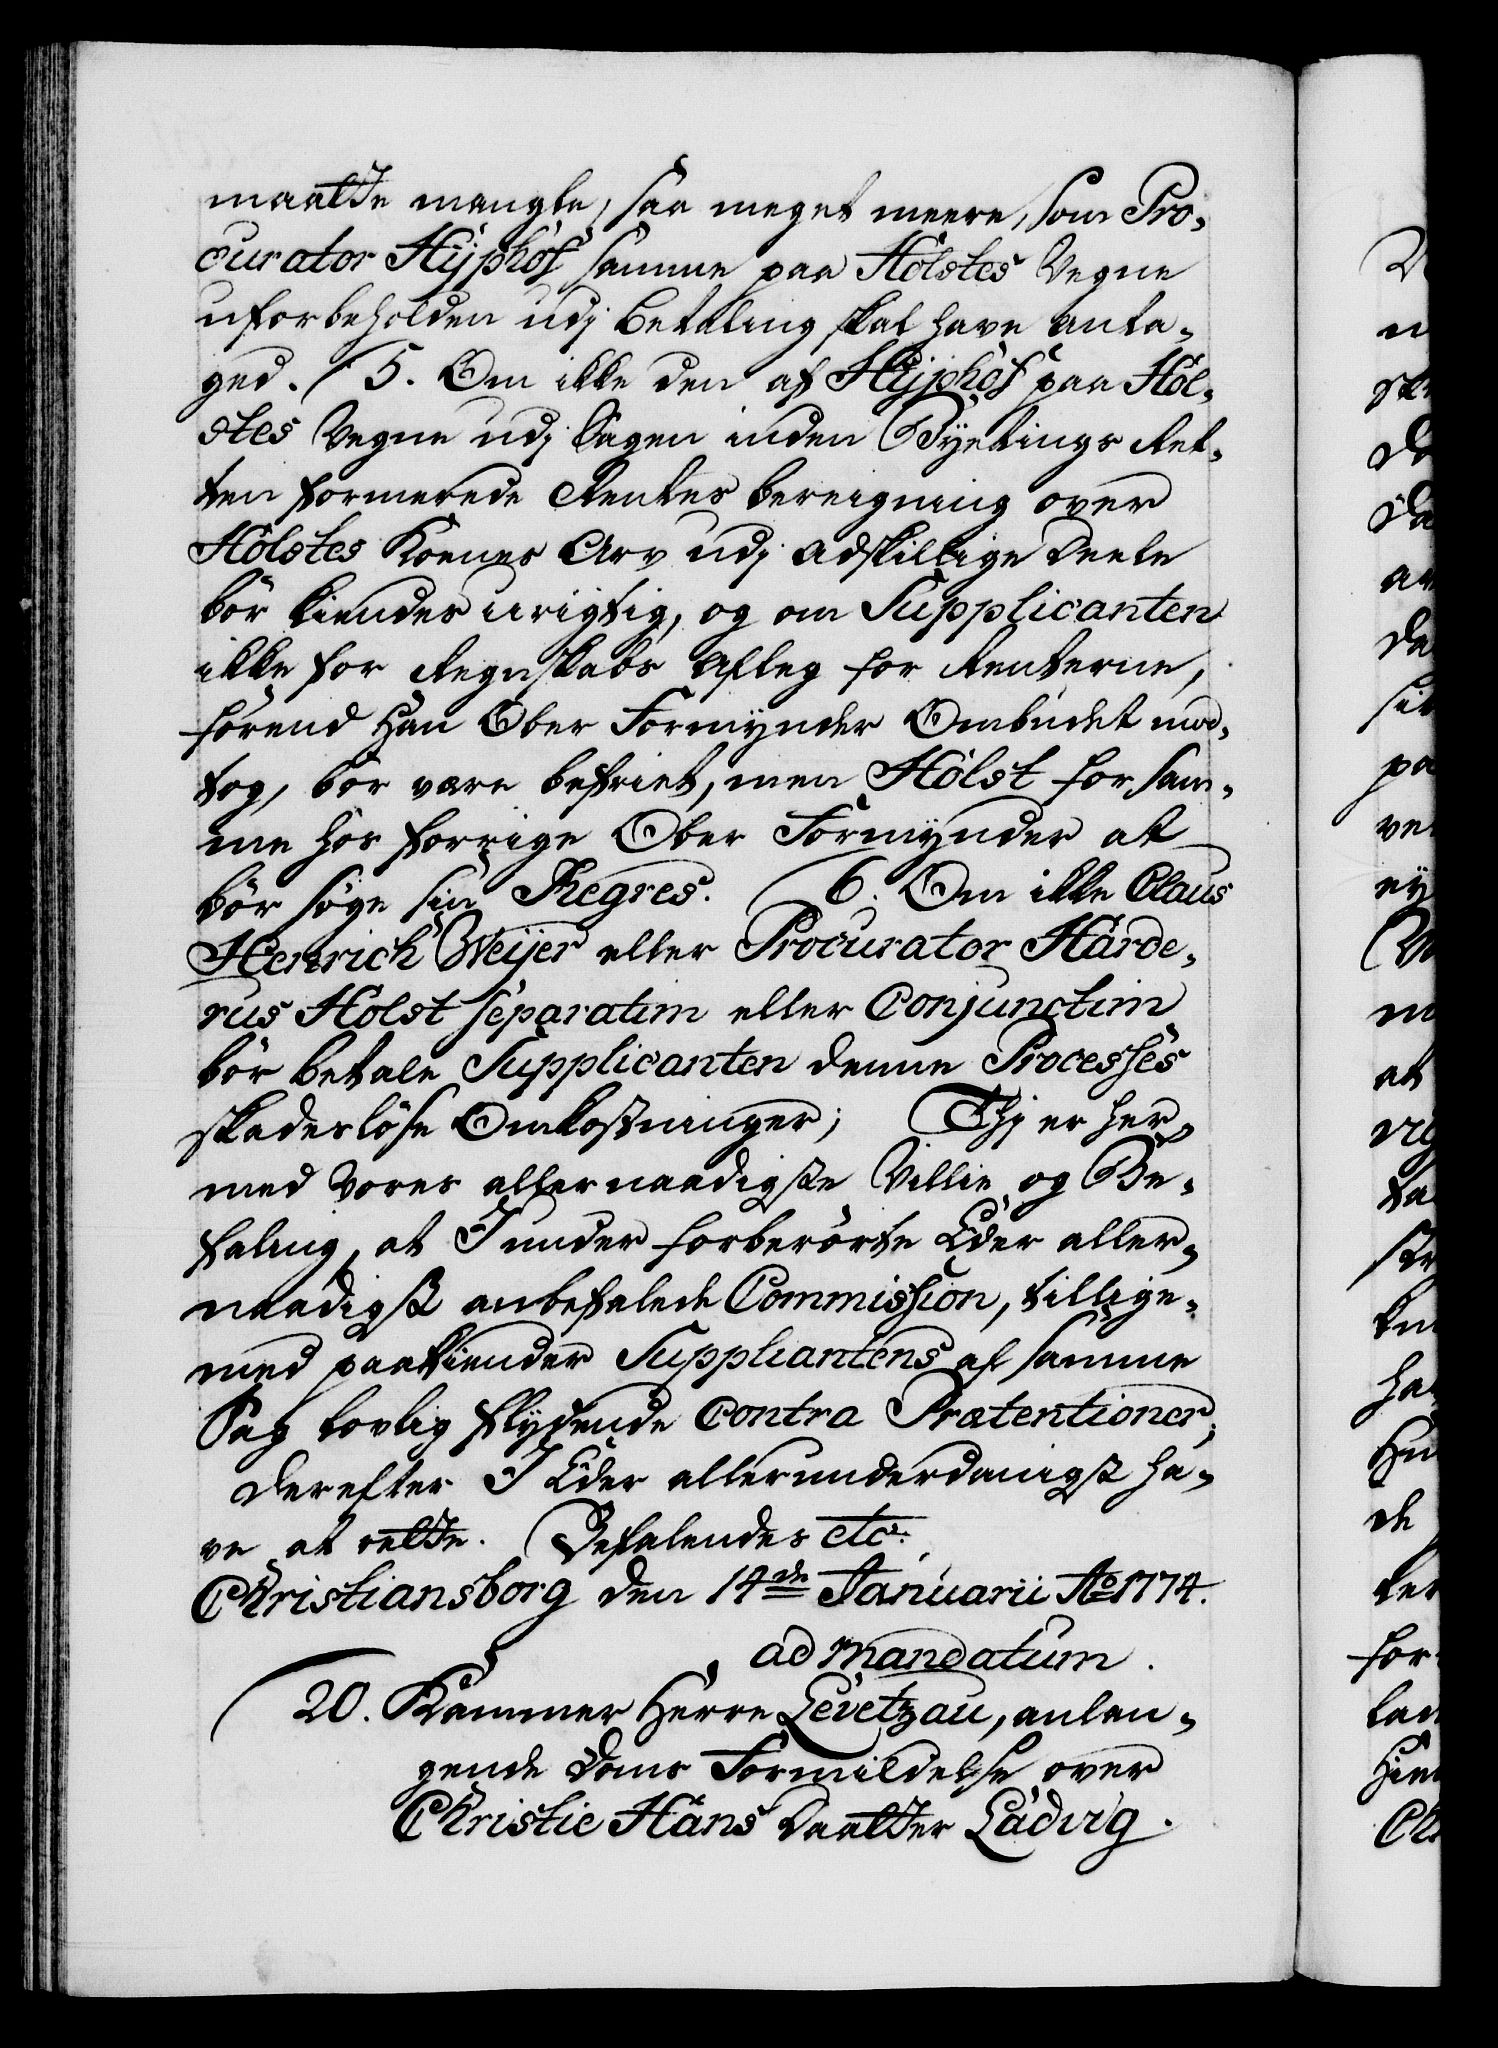 maatte mangle, saa meget meere, som Pro-
curator Hÿphof samme paa Holstes Vegne
uforbeholden udj Betaling skal have anta-
ged. / 5. Om ikke den af Hÿphof paa Hol-
stes Vegne udj Sagen inden Bÿetings Ret-
ten formerede Rentes bereigning over
Holstes Kones Arv udj adskillige Deele
bör kiendes urigtig, og om Supplicanten
ikke for Regnskabs Afleg for Renterne,
förend Han Ober Formynder Ombudet mod-
tog, bör være befriet, men Holst for sam-
me hos forrige Ober Formynder at
bör söge sin Regres. / 6. Om ikke Claus
Henrich Weijer eller Procurator Harde-
rus Holst separatim eller Conjunctim
bör betale Supplicanten denne Processes
skadeslöse Omkostninger; Thj er her-
med Vores allernaadigste Villie og Be-
faling, at I under forberörte Eder aller-
naadigst anbefalede Commission, tillige-
med paakiender Supplicantens af samme
Sag lovlig flÿdende Contra Prætentioner;
derefter I Eder allerunderdanigst ha-
ve at rette. Befalendes etc.
Christiansborg den 14de Januarii Ao 1774.
ad Mandatum.
20. Kammer Herre Levetzau, anlan-
gende Doms Formildelse over
Christie Hans Daatter Ladvig.